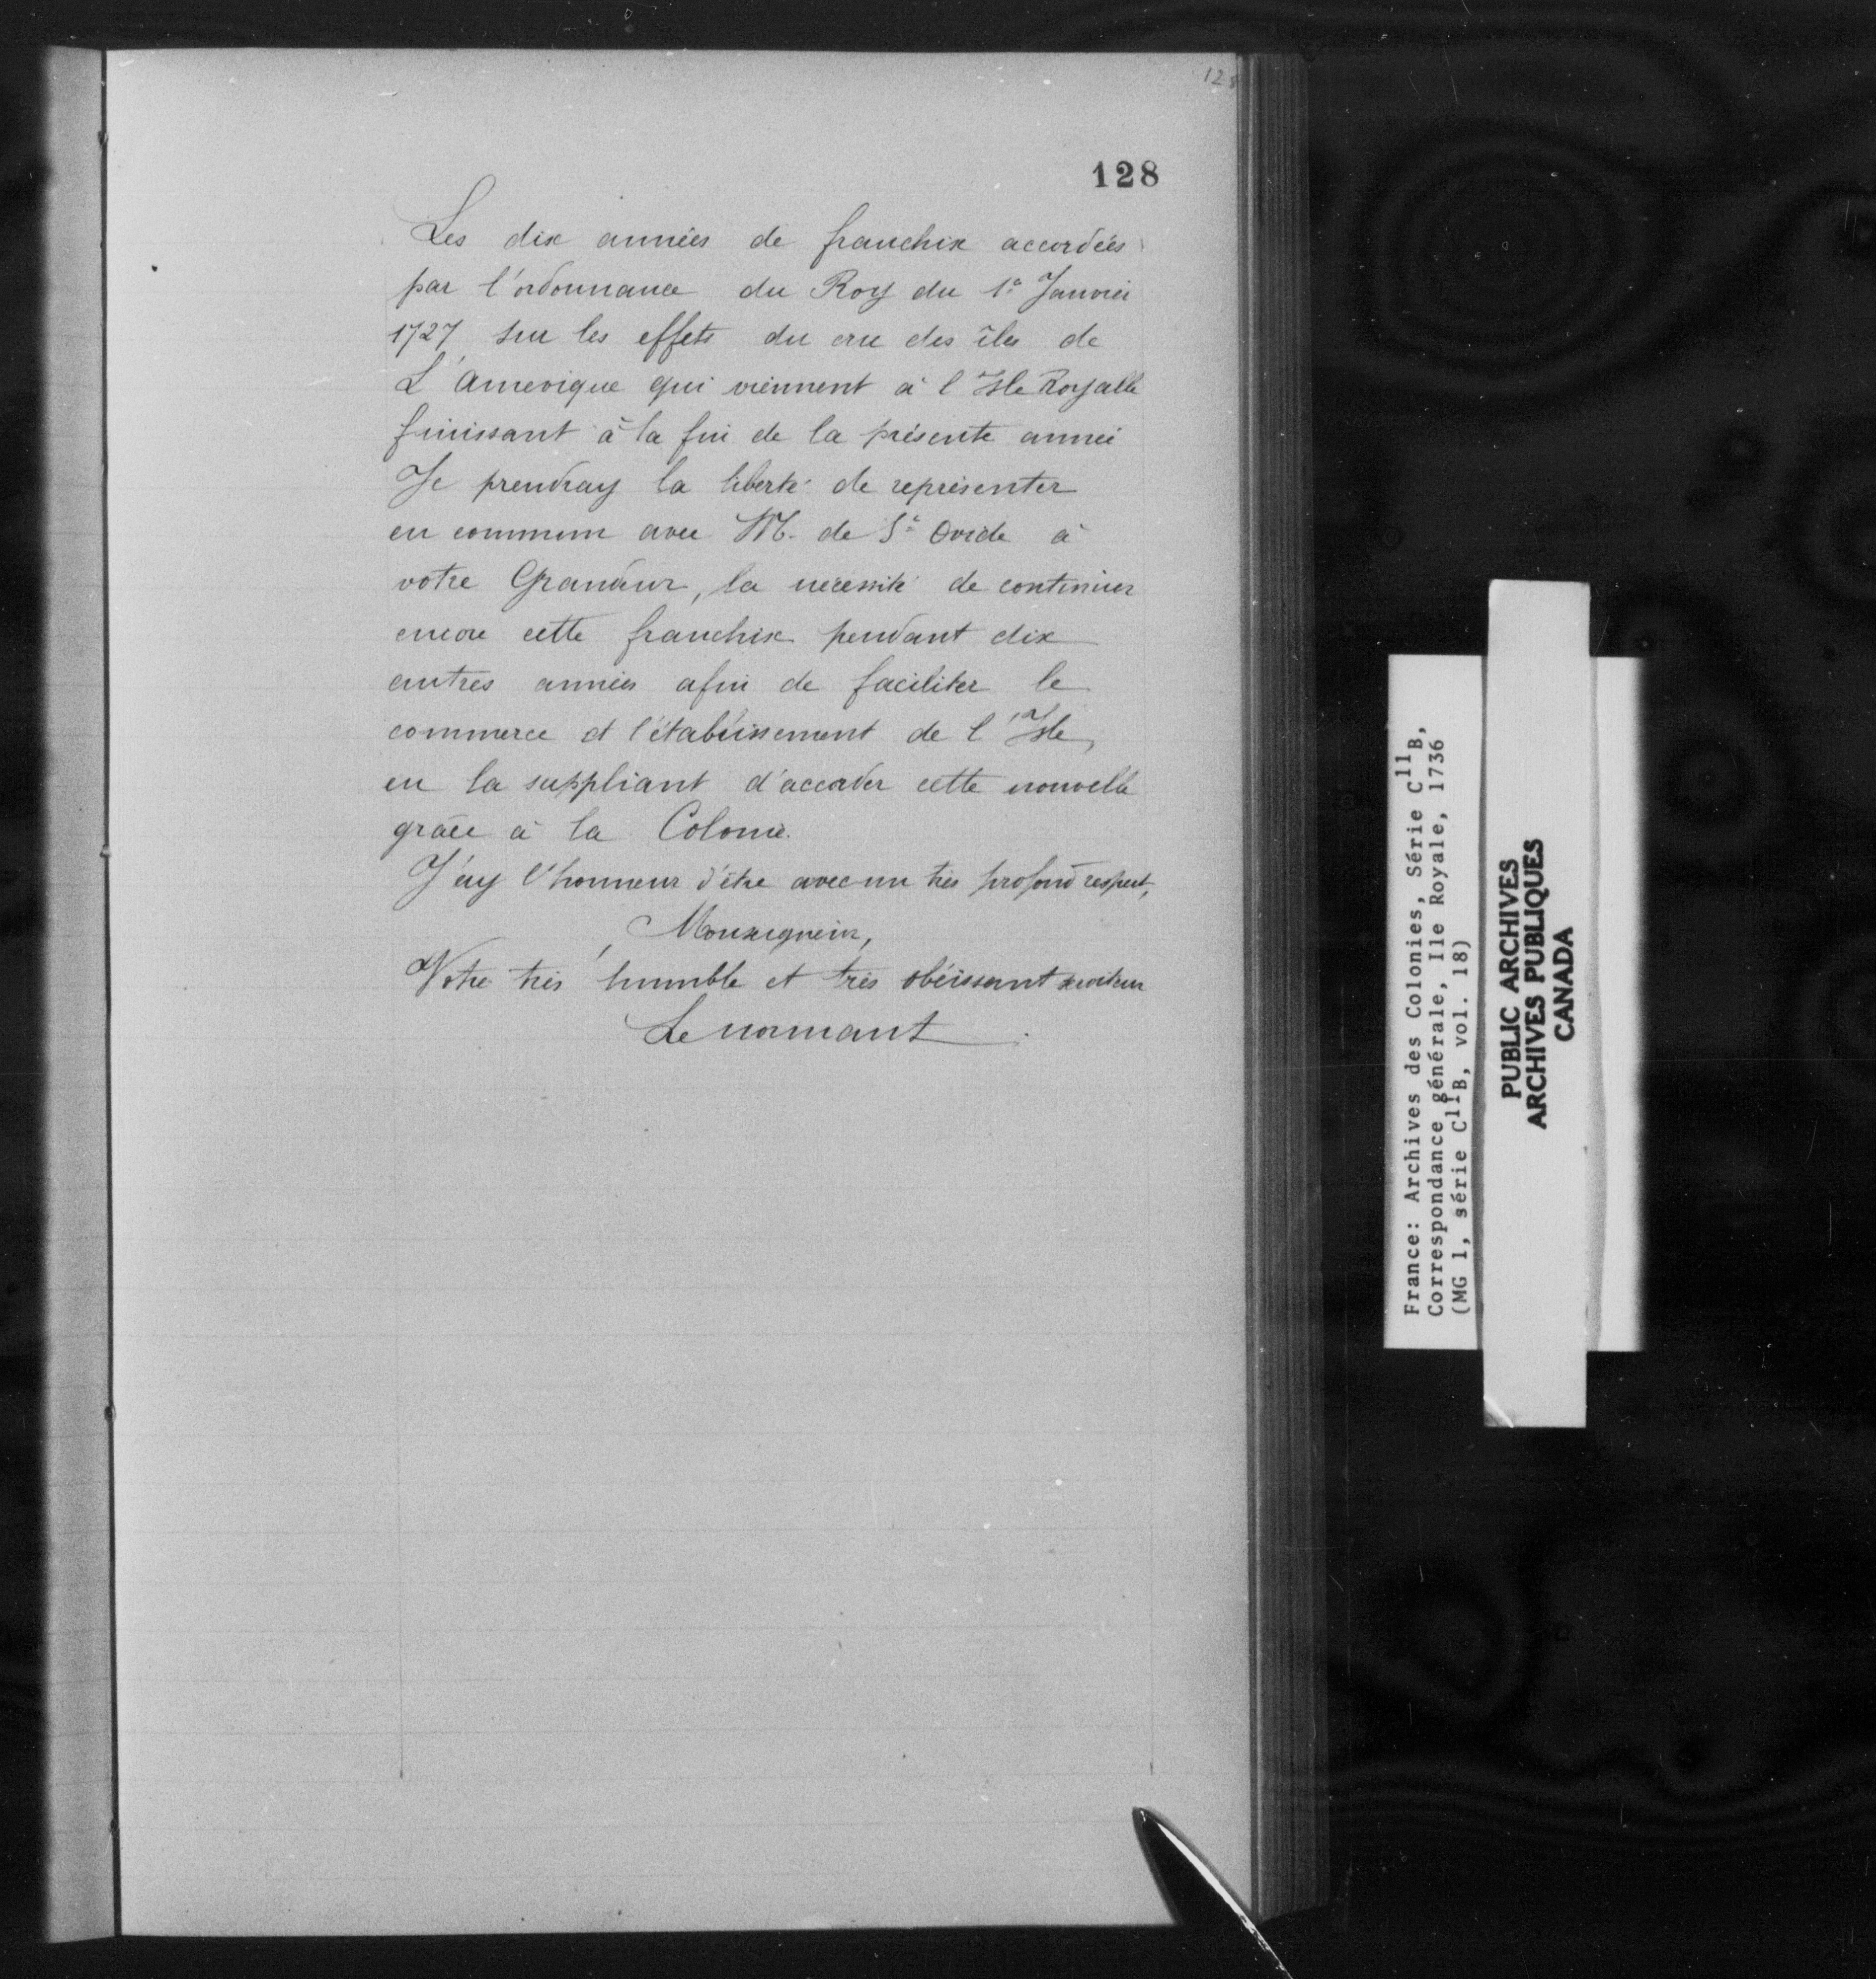 128
128
Les dix années de franchise accordées
par l'ordonnance du Roy du 1er Janvier
1727 sur les effets du cru des îles de
L'Amerique qui viennent à l'Isle Royalle
finissant à la fin de la présente année
Je prendray la liberté de représenter
en commun avec M. de St Ovide à
votre Grandeur, la nécessité de continuer
encore cette franchise pendant dix
autres années afin de faciliter le
commerce et l'établissement de l'Isle,
en la suppliant d'accorder cette nouvelle
grâce à la Colonie.
J'ay l'honneur d'être avec un très profond respect,
Monseigneur,
Votre très humble et très obéissant serviteur
Le normant
France: Archives des Colonies, Série C11B,
Correspondance générale, Ile Royale, 1736
(MG 1, série C11B, vol. 18)
PUBLIC ARCHIVES
ARCHIVES PUBLIQUES
CANADA